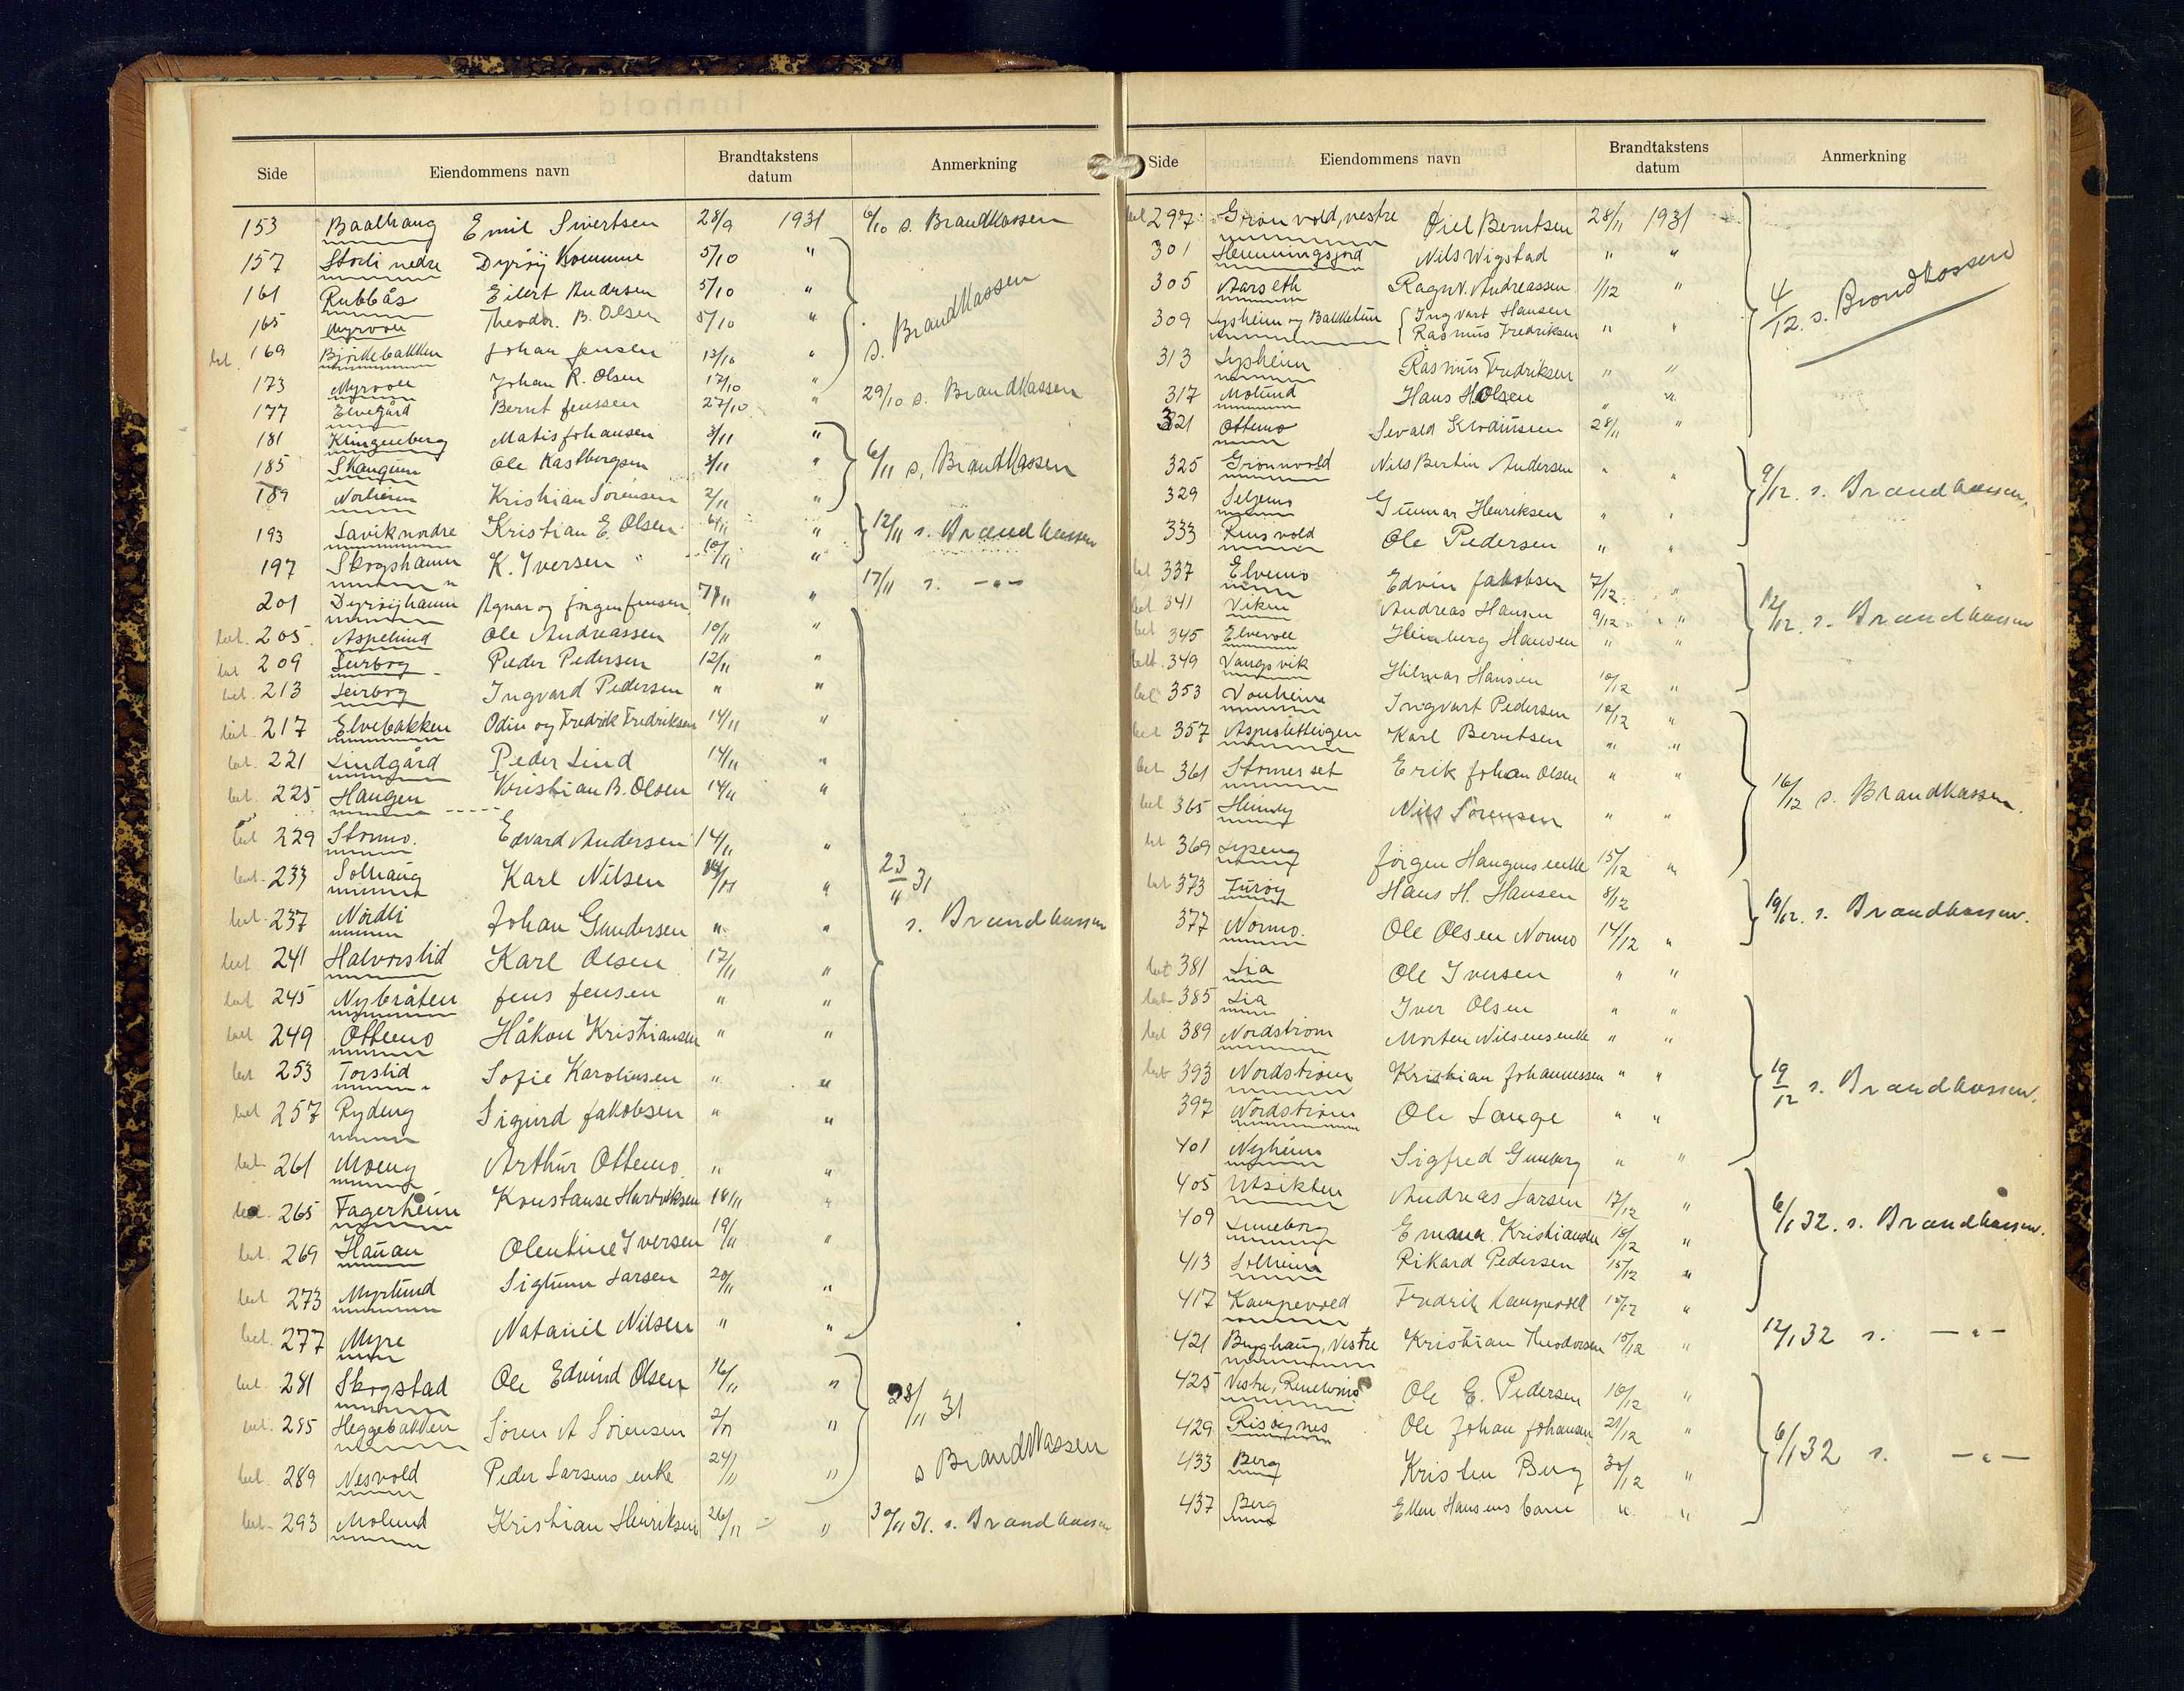 Side Eiendommens navn Brandtakstens datum Anmerkning
153 Baalhaug Emil Sivertsen 28/9 1931 6/10 s. Brandkassen
157 Storli nedre Dyröy Kommune 5/10 "
161 Rubbås Eilert Andersen 5/10 " s. Brandkassen
165 Myrvoll Theodor. B. Olsen 5/10 "
bet. 169 Björkebakken Johan Jensen 13/10 "
173 Myrvoll Johan R. Olsen 17/10 " 29/10 s. Brandkassen
177 Elvegård Bernt Jenssen 27/10 "
181 Klingenberg Matis Johansen 3/11 "
185 Skaugum Ole Kastbergsen 3/11 " 6/11 s. Brandkassen
189 Norheim Kristian Sörensen 2/11 "
193 Lavik nordre Kristian E. Olsen 6/11 " 12/11 s. Brandkassen
197 Skogshamn K. Iversen " 10/11 "
201 Dyröyhamn Agnar og Jörgen Jensen 7/11 " 17/11 s. —"—
bet. 205 Aspelund Ole Andreassen 10/11 "
bet 209 Leirbog Peder Pedersen 12/11 "
bet. 213 Leirbog Ingvard Pedersen " "
bet. 217 Elvebakken Odin og Fredrik Fredriksen 14/11 "
bet. 221 Lindgård Peder Lind 14/11 "
bet. 225 Haugen Kristian B. Olsen 14/11 "
bet 229 Stormo. Edvard Andersen 14/11 "
bet. 233 Solhaug Karl Nilsen 14/11 " 23/11 31
bet. 237 Nordli Johan Gundersen " " s. Brandkassen
bet 241 Halvorslid Karl Olsen 17/11 "
bet 245 Nybråten Jens Jensen " "
bet 249 Ottemo Håkon Kristiansen " "
bet 253 Torslid Sofie Karolinsen " "
bet 257 Rydeng Sigurd Jakobsen " "
bet. 261 Moeng Arthur Ottemo " "
bet. 265 Fagerheim Konstanse Hartviksen 18/11 "
bet. 269 Hauan Olentine Iversen 19/11 "
bet 273 Myrlund Sigtunn Larsen 20/11 "
bet. 277 Myre Nataniel Nilsen " "
bet. 281 Skogstad Ole Edvind Olsen 16/11 " 28/11 31
bet. 285 Heggebakken Sören A Sörensen 2/11 "
bet. 289 Nesvold Peder Larsens enke 24/11 " s Brandkassen
bet. 293 Molund Kristian Henriksen 26/11 " 30/11 31. s. Brandkassen
Side Eiendommens navn Brandtakstens datum Anmerkning
bet 297 Grönvold, vestre Kiel Berntsen 28/11 1931
301 Hemmingsjord Nils Wigstad " "
305 Aarseth Ragnv. Andreassen 1/12 " 4/12. s. Brandkassen
309 Lysheim og Bakketun { Ingvart Hansen
Rasmus Fredriksen " "
313 Lysheim Rasmus Fredriksen " "
317 Molund Hans H. Olsen " "
321 Ottemo Sevald Klodinsen 28/11 "
325 Grönnvold Nils Bertin Andersen " " 9/12. s. Brandkassen
329 Seljemo Gunnar Henriksen " "
333 Ole Pedersen " "
bet 337 Elvemo Edvin Jakobsen 7/12 "
bet 341 Viken Andreas Hansen 9/12 " 12/12. s. Brandkassen
bet 345 Elvevoll Heimberg Hansen " "
bet. 349 Vangsvik Hilmar Hansen 10/12 "
bet 353 Vonheim Ingvart Pedersen 10/12 "
bet 357 Aspesletteigen Karl Berntsen " "
bet 361 Stomesset Erik Johan Olsen " " 16/12 s. Brandkassen.
bet 365 Heimly Nils Sörensen " "
bet 369 Lyseng Jörgen Haugens enke 15/12 "
bet 373 Furöy Hans H. Hansen 8/12 19/12. s. Brandkassen.
377 Normo. Ole Olsen Normo 14/12 "
bet 381 Lia Ole Iversen " "
bet 385 Lia Iver Olsen " "
bet 389 Nordström Morten Nilsens enke " "
bet 393 Nordström Kristian Johannessen " " 19/12 s. Brandkassen.
397 Nordström Ole Lange " "
401 Nyheim Sigfred Gunberg " "
405 Utsikten Andreas Larsen 17/12 "
409 Luneborg Emma Kristiansen 18/12 " 6/1 32. s. Brandkassen.
413 Solheim Rikard Pedersen 15/12 "
417 Kampevold Fredrik Kampevold 12/12 "
421 Berghaug, Vestre Kristian Theodorsen 15/12 " 12/1 32 s. —"—
425 Vestre, Ole E. Pedersen 10/12 "
429 Risöynes Ole Johan Johansen 21/12 "
433 Berg Kristen Berg 30/12 " 6/1 32 s. —"—
437 Berg Ellen Hansens barn " "